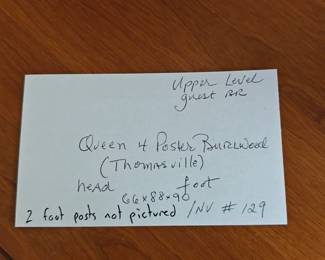 Upper Level
guest BR
Queen 4 Poster Burlwood
(Thomasville)
head foot
66x88x90
2 foot posts not pictured /NV # 129